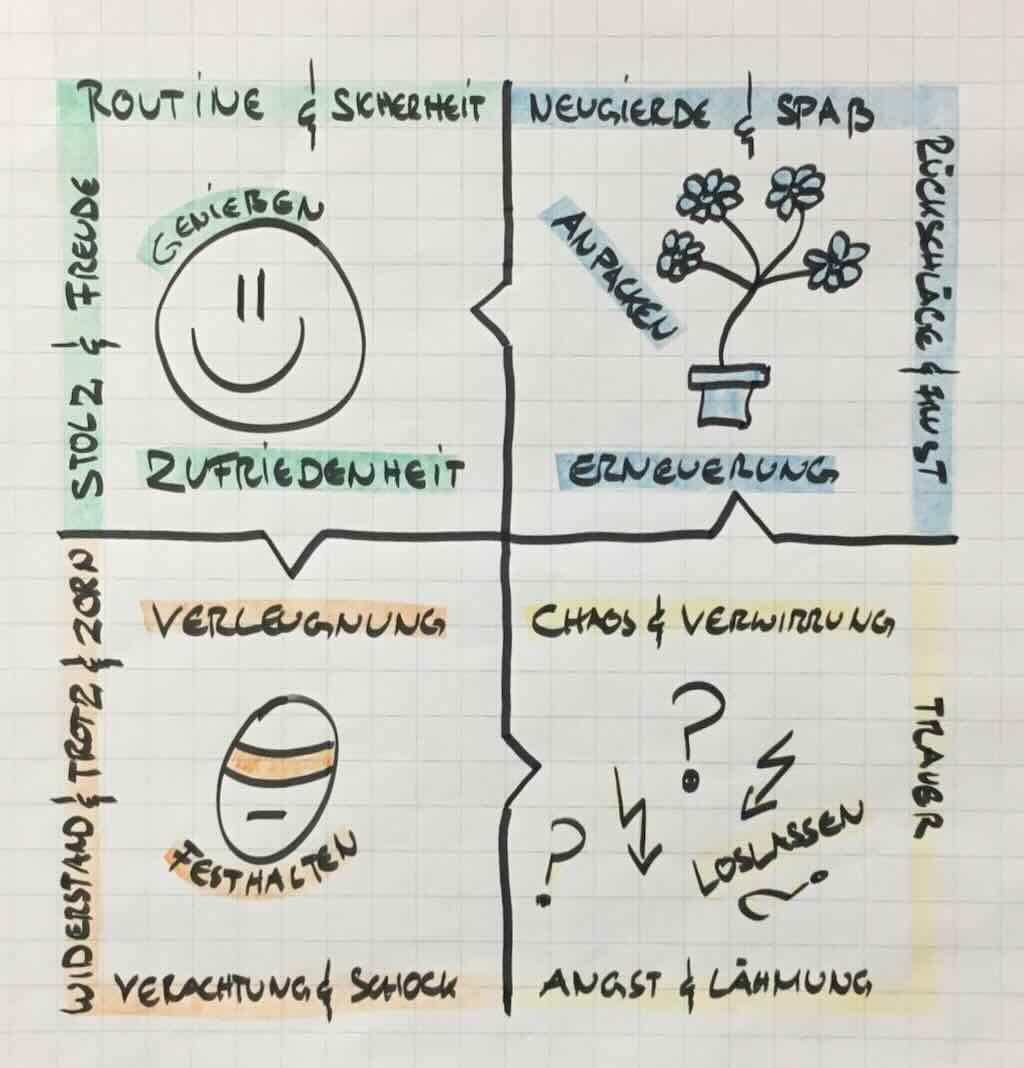 ROUTINE & SICHERHEIT
STOLZ & FREUDE
GENIEßEN
ZUFRIEDENHEIT
NEUGIERDE & SPAß
RÜCKSCHLÄGE & FRUST
ANPACKEN
ERNEUERUNG
VERLEUGNUNG
WIDERSTAND & TROTZ & ZORN
FESTHALTEN
VERACHTUNG & SCHOCK
CHAOS & VERWIRRUNG
TRAUER
?
?
LOSLASSEN
?
ANGST & LÄHMUNG